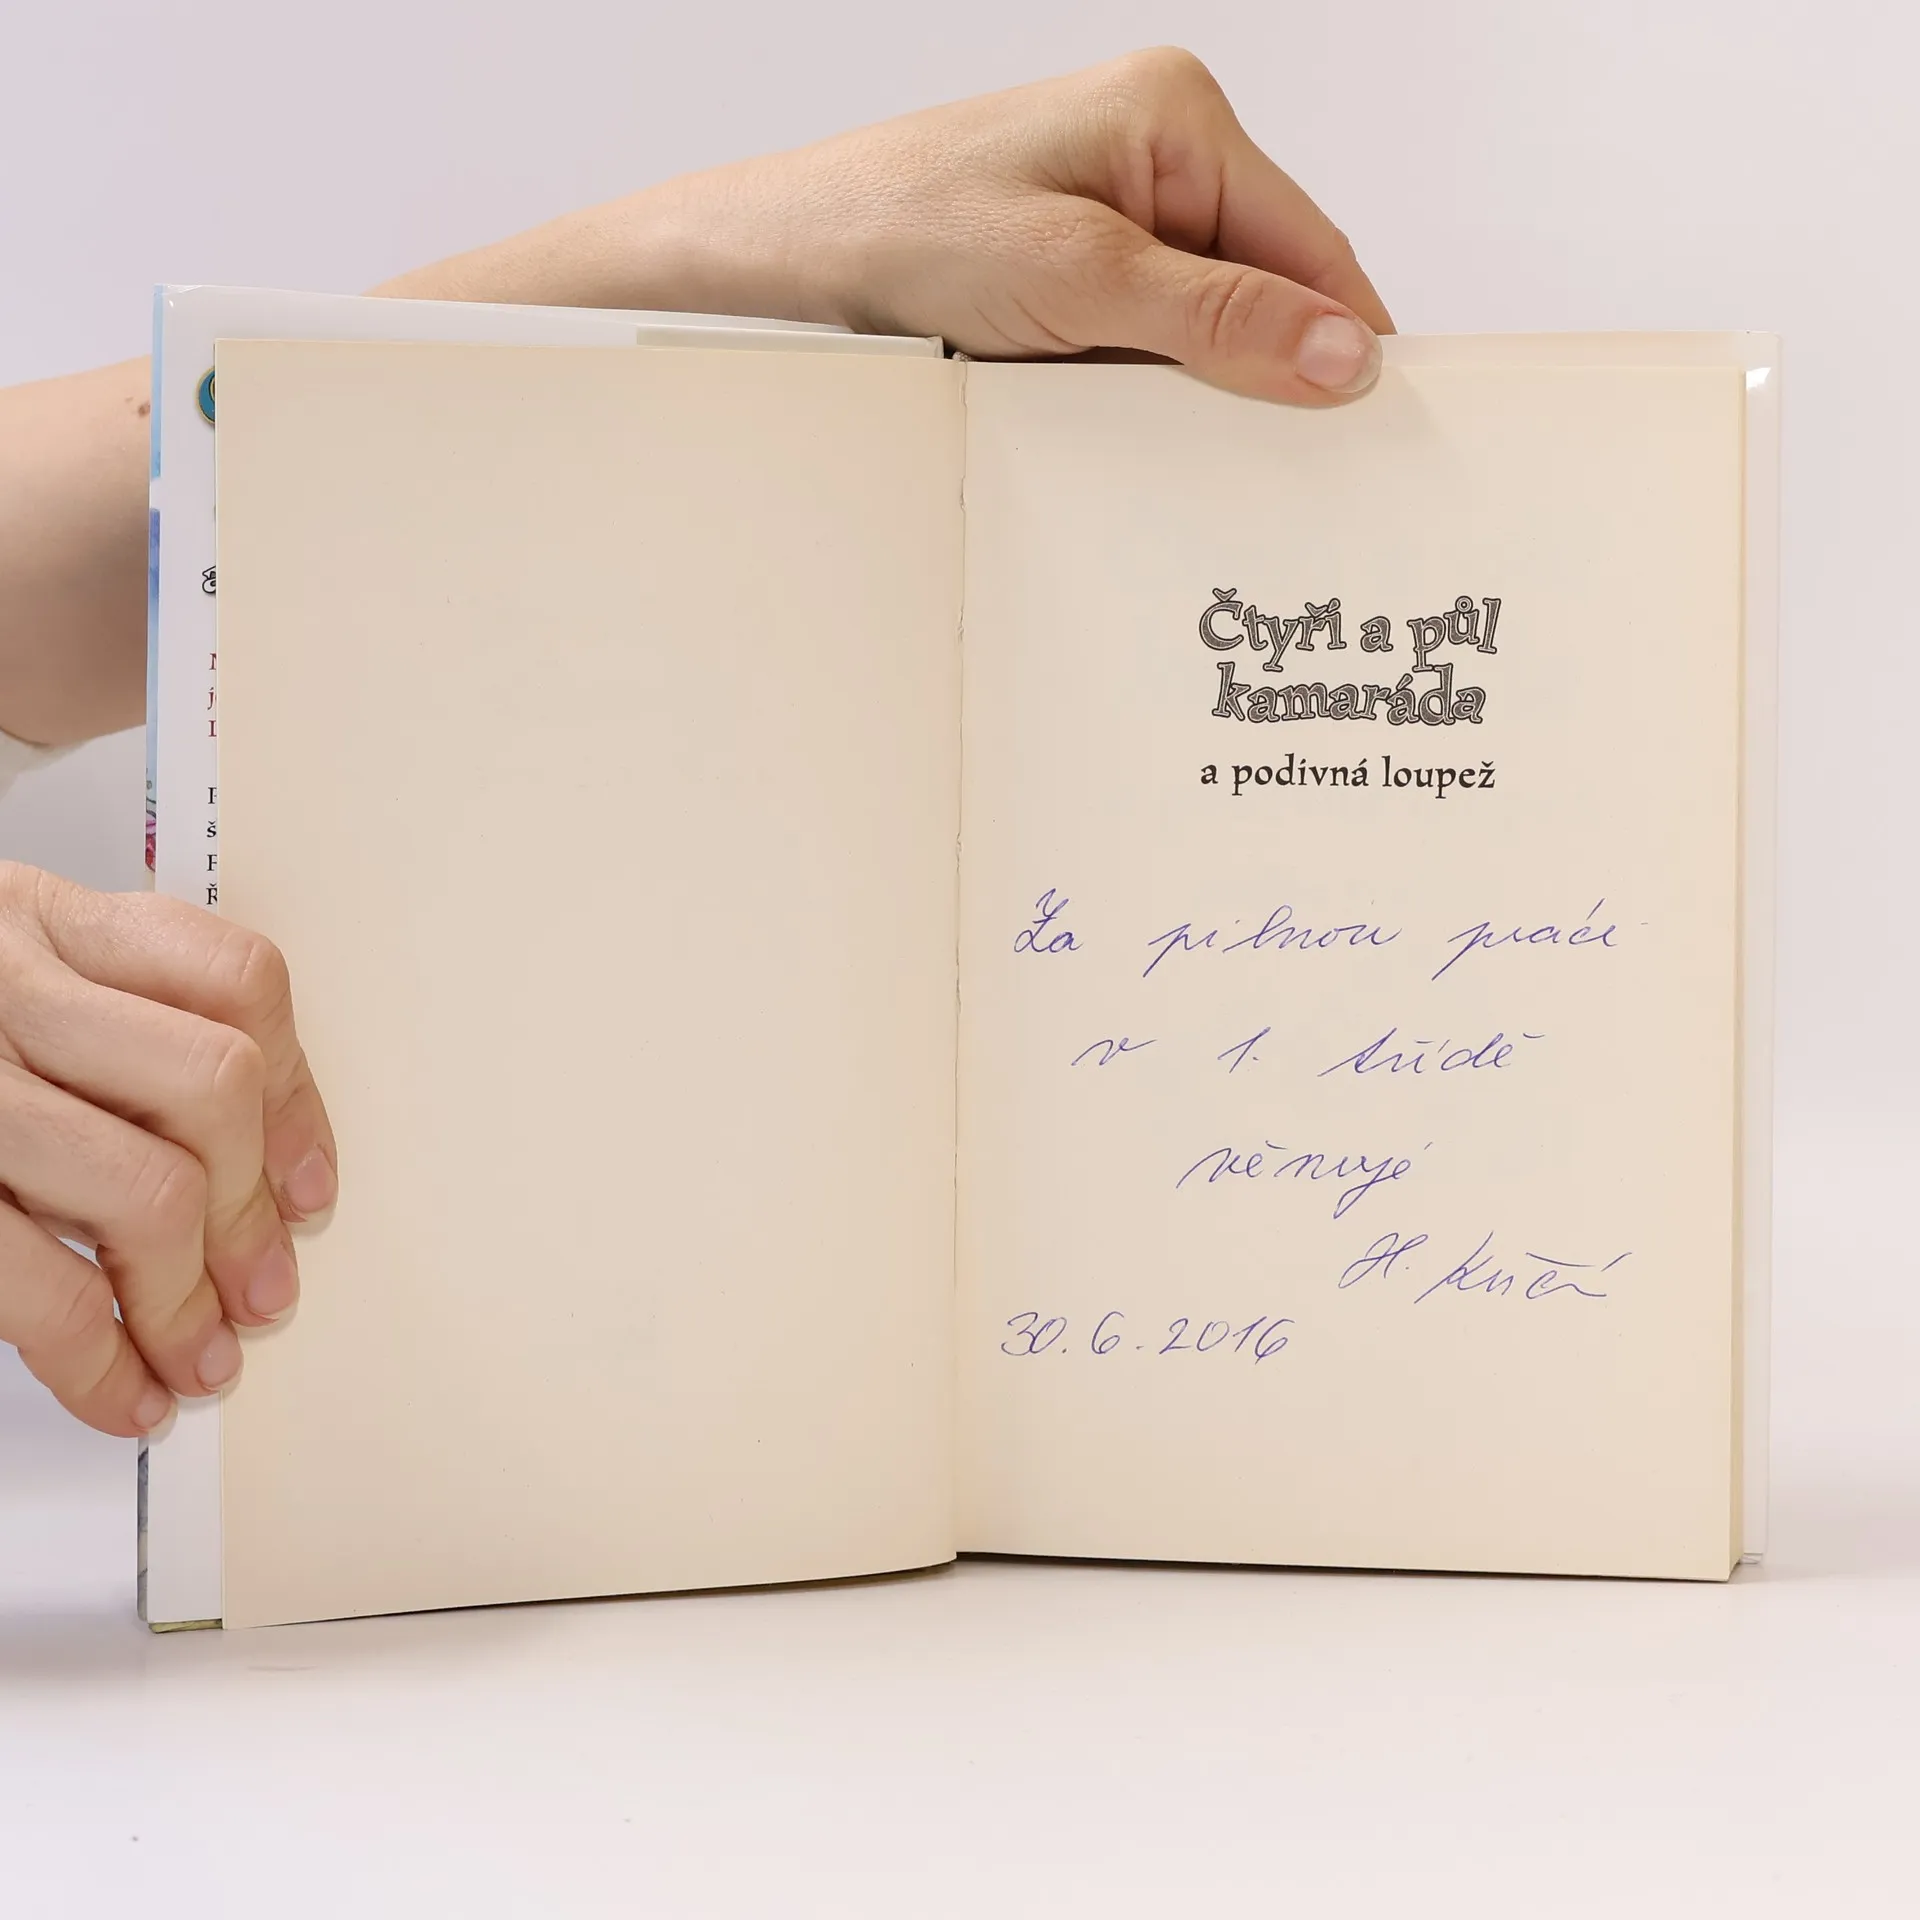 Čtyři a půl
kamaráda
a podivná loupež
Za pilnou práci
v 1. třídě
věnuje
H.
30.6.2016